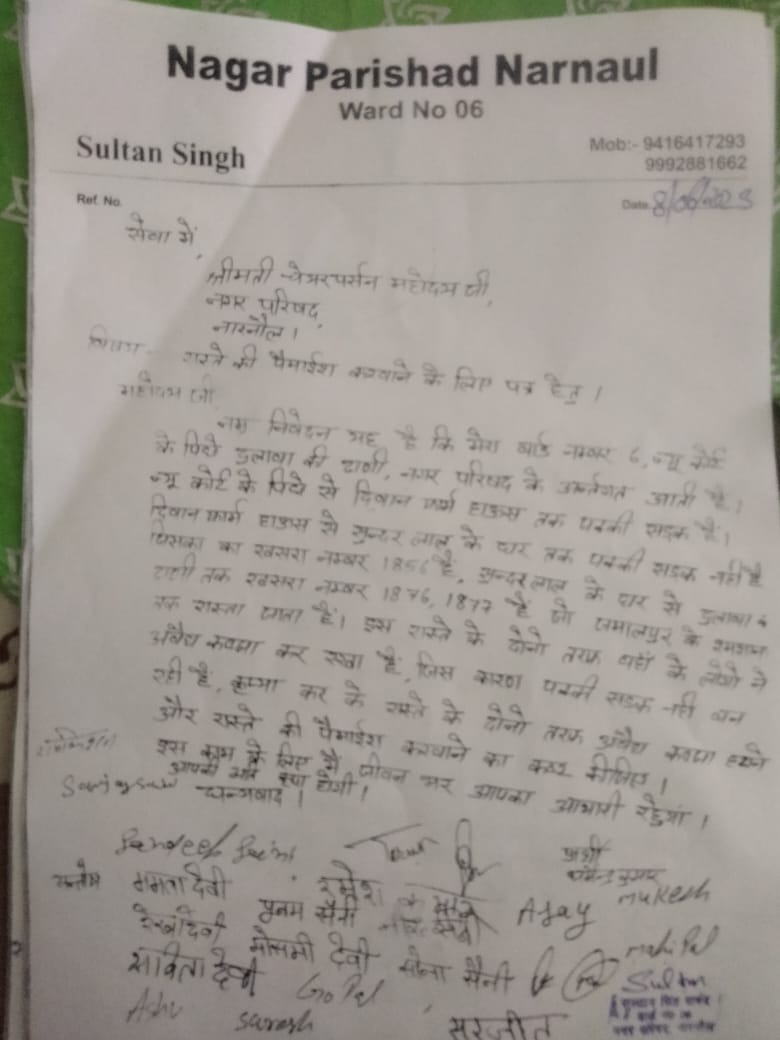 Nagar Parishad Narnaul
Ward No 06
Sultan Singh
Mob:- 9416417293
9992881662
Ref. No.
Date 8/06/2023
सेवा में,
श्रीमती चेयरपर्सन महोदया जी,
नगर परिषद,
नारनौल।
विषय- रास्ते की पैमाईश करवाने के लिए पत्र हेतु।
महोदया जी
नम्र निवेदन यह है कि मेरा वार्ड नम्बर 6, न्यू कोर्ट
के पिछे डुलावा की ढाणी, नगर परिषद के अर्न्तगत आती है।
न्यू कोर्ट के पिछे से दिवान फार्म हाऊस तक पक्की सड़क है।
दिवान फार्म हाऊस से सुन्दर लाल के घर तक पक्की सड़क नहीं है
जिसका का खसरा नम्बर 1856 है, सुन्दर लाल के घर से डुलावा
ढाणी तक खसरा नम्बर 1876, 1877 है जो जमालपुर के शमशान
तक रास्ता जाता है। इस रास्ते के दोनो तरफ वहाँ के लोगो ने
अवैध कब्जा कर रखा है, जिस कारण पक्की सड़क नही बन
रही है, कृप्या कर के रास्ते के दोनो तरफ अवैध कब्जा हटाने
और रास्ते की पैमाईश करवाने का कष्ट कीजिए।
इस काम के लिए मै जीवन भर आपका आभारी रहुंगा।
आपकी अति कृपा होगी।
धन्यवाद।
Sandeep Saini
प्रार्थी
ममता देवी
रमेश
Ajay
Mukesh
रेखा देवी
पूनम सैनी
मौसमी देवी
सोना सैनी
Mahi Pal
सविता देवी
GoPal
Sultan
Ashu
Suresh
सरजीत